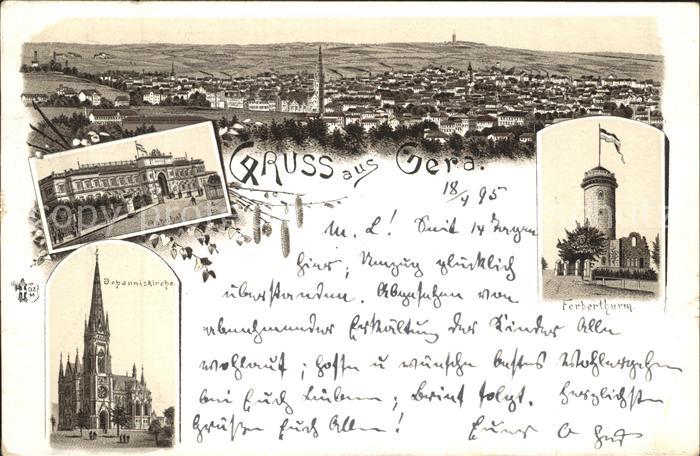 GRUSS aus Gera.
18/4 95
Johanniskirche.
Ferberthurm.
M. L! Seit 14 Tagen
hier, Umzug glücklich
überstanden. Abgesehen von
abnehmender Erkältung der Kinder Alle
wohlauf; hoffe u wünsche bestes Wohlergehen
bei Euch Lieben; Brief folgt. Herzlichste
Grüße Euch Allen! Euer